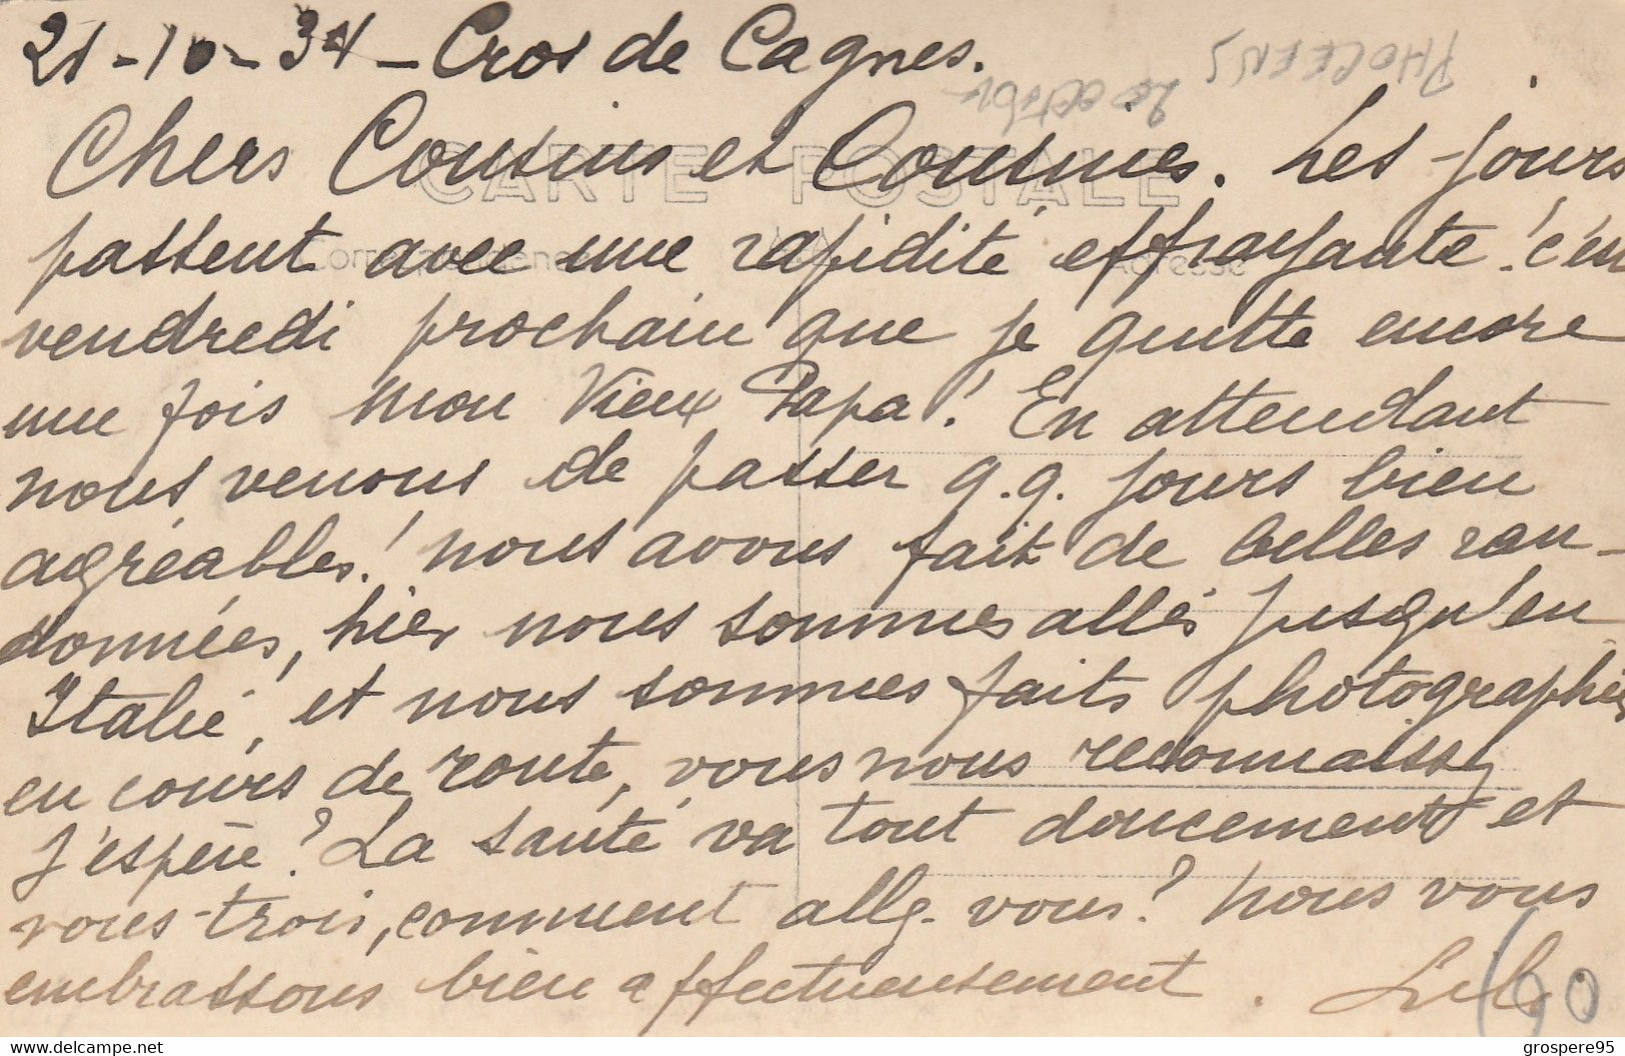 21-10-34 - Cros de Cagnes.
PHOCEENS
20 octobre
CARTE POSTALE
Chers Cousins et Cousines. Les jours
Correspondance
Adresse
passent avec une rapidité effrayante! c'est
vendredi prochain que je quitte encore
une fois mon Vieux Papa! En attendant
nous venons de passer q.q. jours bien
agréables! nous avons fait de belles ran-
données, hier nous sommes allés jusqu'en
Italie, et nous sommes faits photographiés
en cours de route, vous nous reconnaissez
j'espère? La santé va tout doucement et
vous trois, comment allez-vous? nous vous
embrassons bien affectueusement.
60
delcampe.net
grospere95